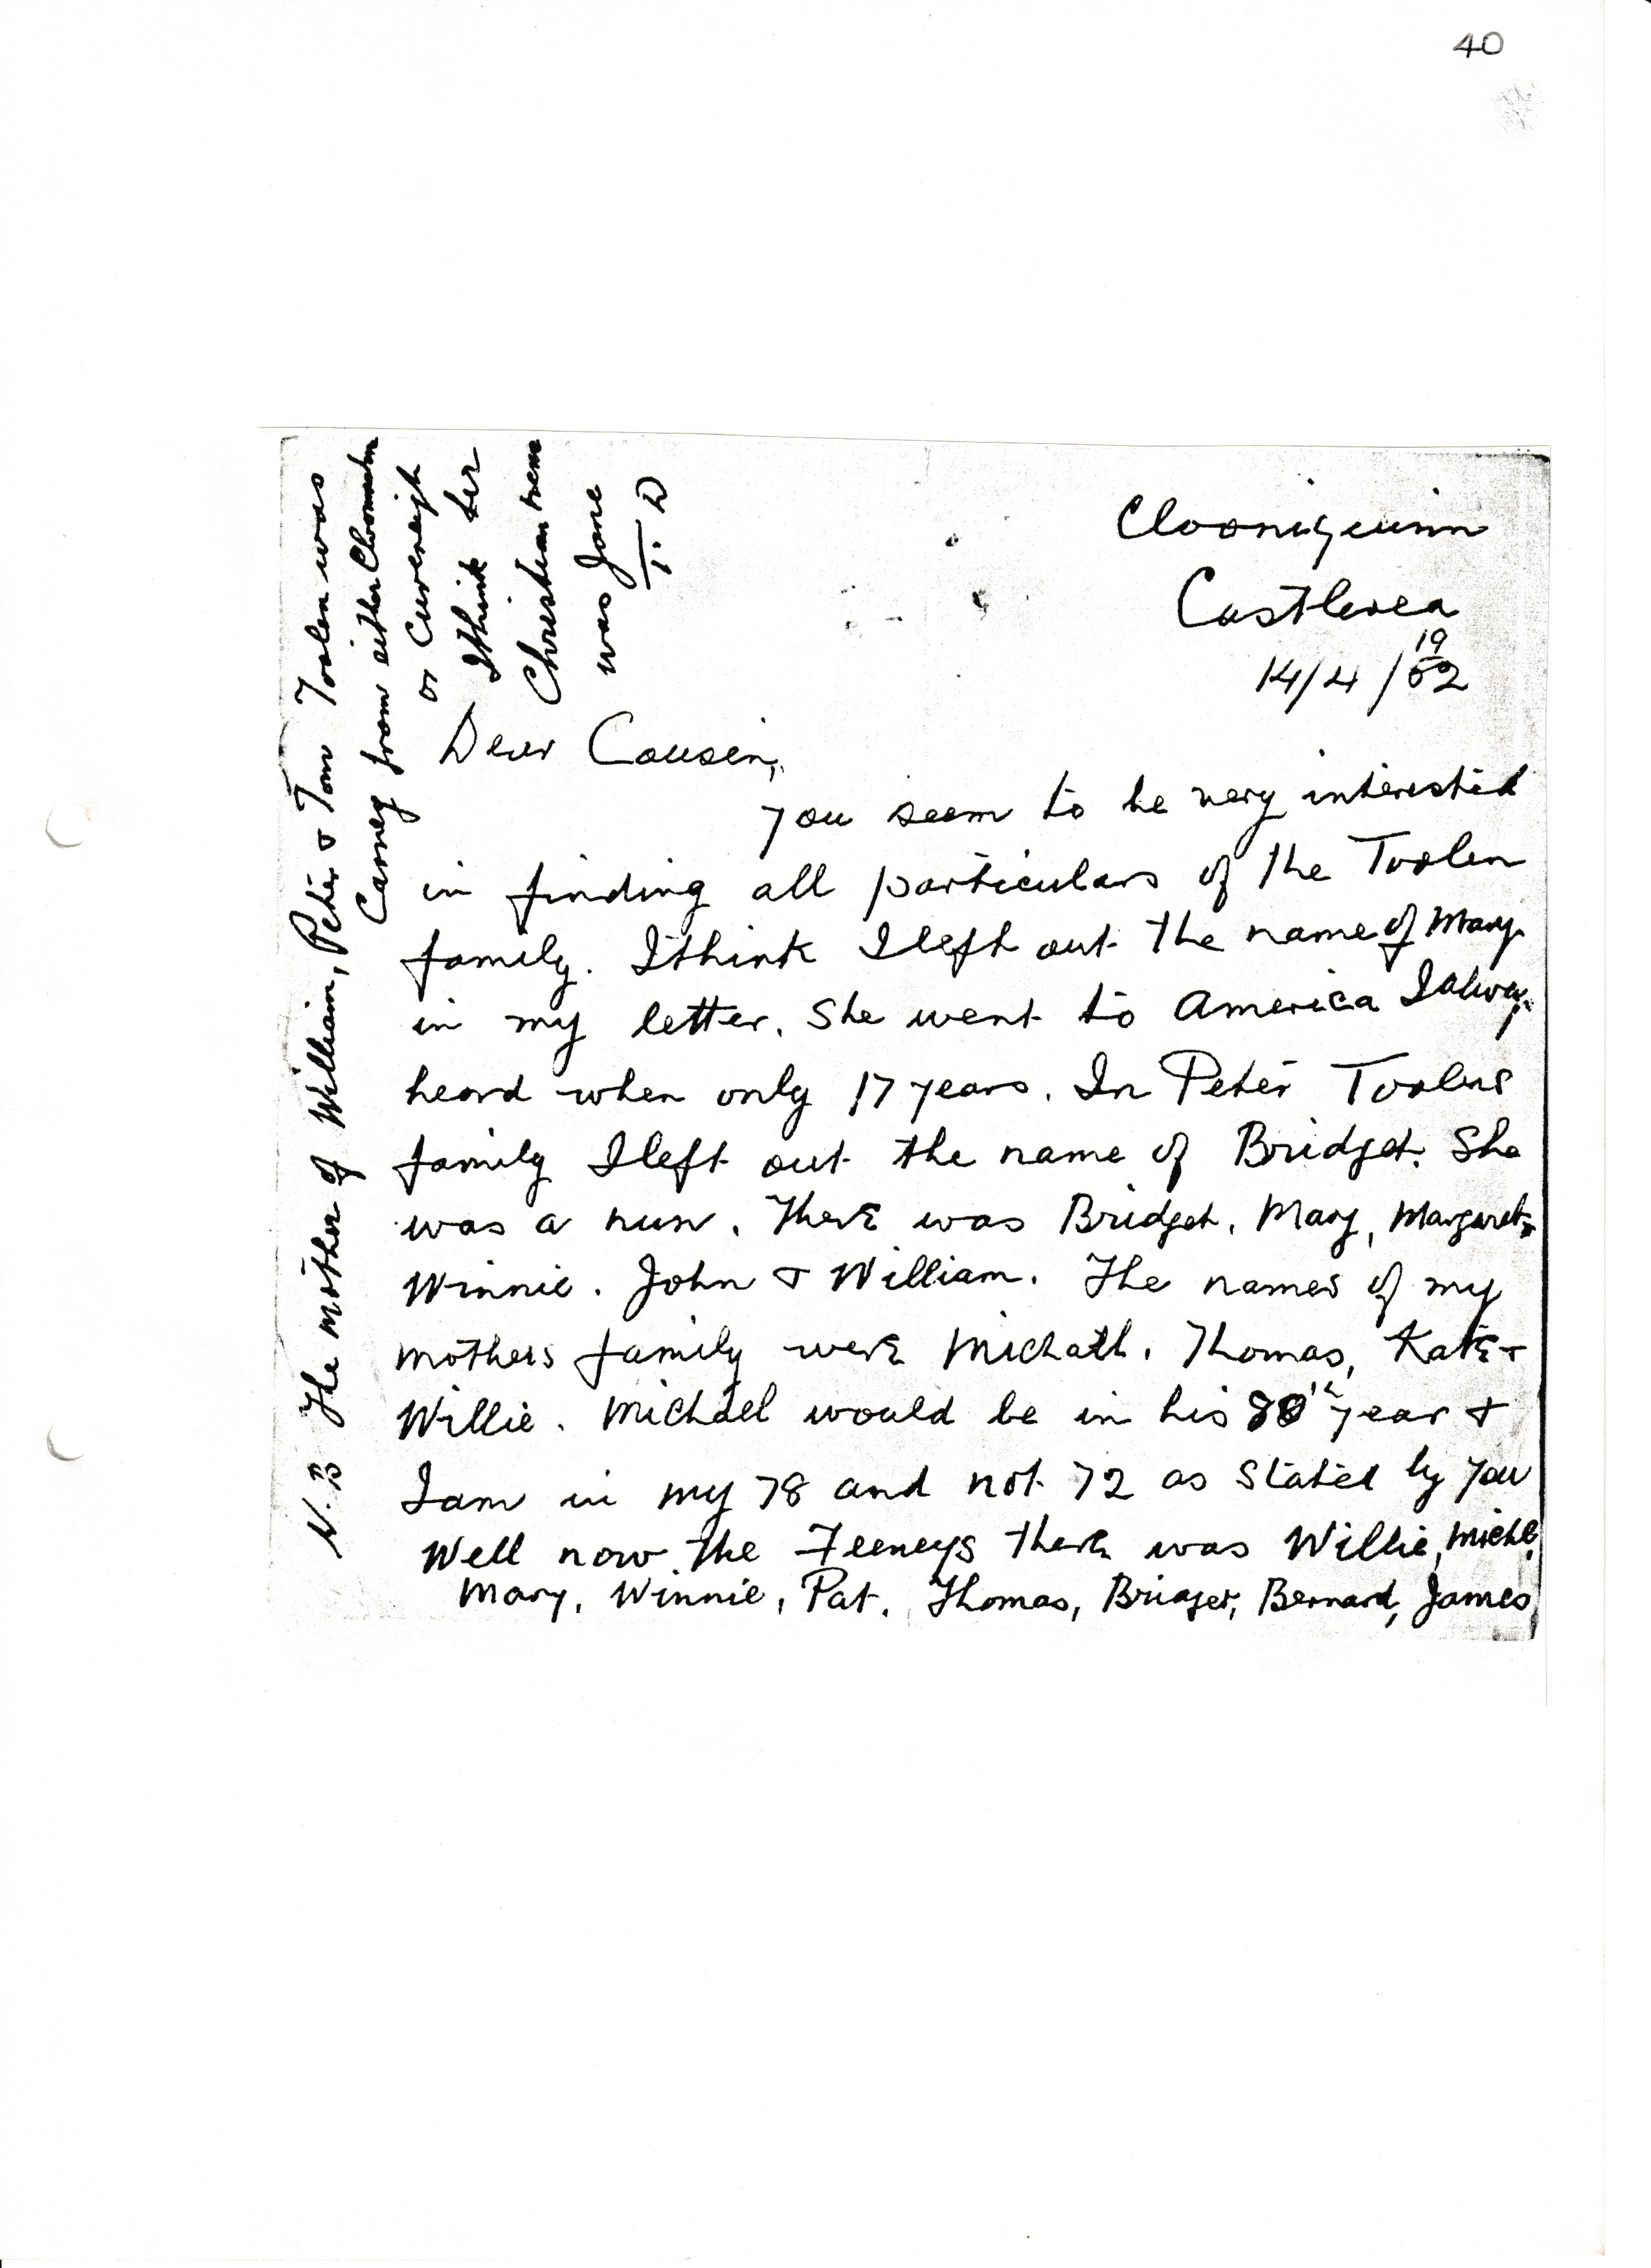 40
Cloonigunn
Castlerea
14/4/1962
Dear Cousin,
you seem to be very interested
in finding all particulars of the Toolen
family. I think I left out the name of Mary
in my letter. She went to America I alway
heard when only 17 years. In Peter Toolens
family I left out the name of Bridget. She
was a nun. There was Bridget, Mary, Margaret,
Winnie. John & William. The names of my
mothers family were Michael. Thomas, Kate &
Willie. Michael would be in his 80th year &
I am in my 78 and not 72 as stated by you
Well now the Feeneys there was Willie, Michl
Mary, Winnie, Pat. Thomas, Bridget, Bernard, James
N.B The mother of William, Peter & Tom Toolen was
Carney from either
or
I think her
Christian name
was Jane
T. D